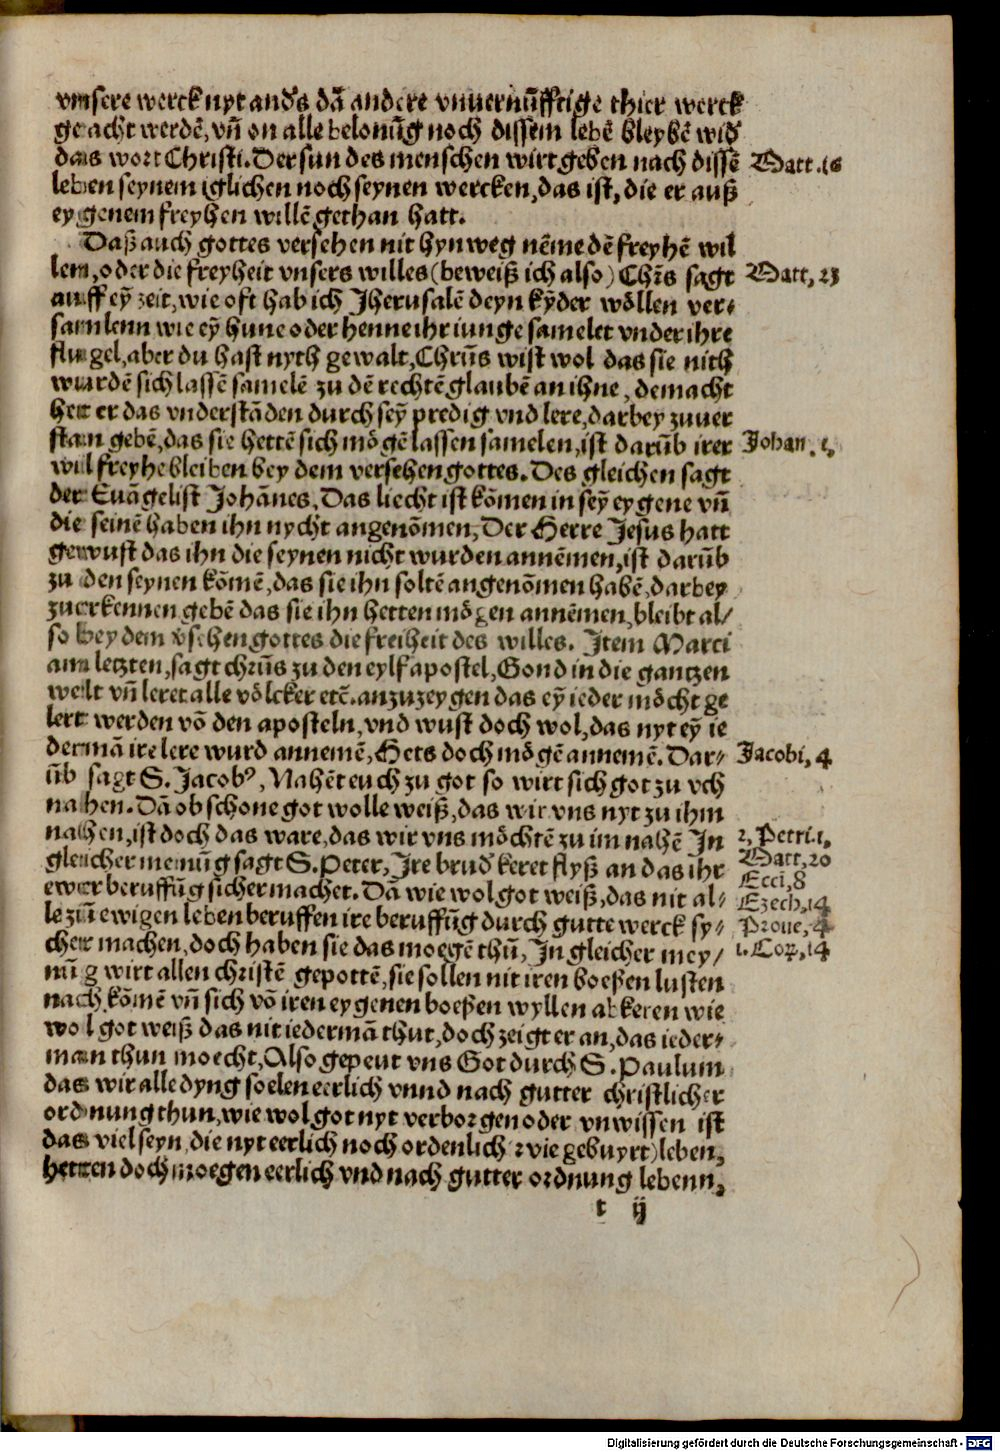 vnsere werck nyt and's dā andere vnuernūfftige thier werck
geacht werdē, vñ on alle belonūg noch dissem lebē bleybē wid'
das wort Christi. Der sun des menschen wirt geben nach dissē
Matt. 16
leben seynem iglichen noch seynen wercken, das ist, die er auß
eygenem freyhen willē gethan hatt.
Daß auch gottes versehen nit hynweg nēme dē freyhē wil
lem, oder die freyheit vnsers willes (beweiß ich also) Chr̄s sagt
Matt, 23
auff eȳ zeit, wie oft hab ich Jherusalē deyn kȳder wöllen ver⸗
samlenn wie eȳ hune oder henne ihr iunge samelet vnder ihre
flugel, aber du hast nyth gewalt, Chrūs wist wol das sie nith
wurdē sich lassē samelē zu dē rechtē glaubē an ihne, demacht
hett er das vnderstāden durch seȳ predig vnd lere, darbey zuuer
stan gebē, das sie hettē sich mögē lassen samelen, ist darūb irer
Johan. 1,
wil freyhe bleiben bey dem versehen gottes. Des gleichen sagt
der Euāgelist Johānes, Das liecht ist kōmen in seȳ eygene vñ
die seinē haben ihn nycht angenōmen, Der Herre Jesus hatt
gewust das ihn die seynen nicht wurden annēmen, ist darūb
zu den seynen kōmē, das sie ihn soltē angenōmen habē, darbey
zuerkennen gebē das sie ihn hetten mögen annēmen, bleibt al/
so bey dem v̄sehen gottes die freiheit des willes. Item Marci
am letzten, sagt chrūs zu den eylf apostel, Gond in die gantzen
welt vñ leret alle völcker etē. anzuzeygen das eȳ ieder möcht ge
lert werden vō den aposteln, vnd wust doch wol, das nyt eȳ ie
dermā ire lere wurd annemē, Hets doch mögē annemē. Dar⸗
Jacobi, 4
ūb sagt S. Jacobꝰ, Nahēt euch zu got so wirt sich got zu vch
nahen. Dā ob schone got wolle weiß, das wir vns nyt zu ihm
nahen, ist doch das ware, das wir vns möchtē zu im nahē In
2, Petri. 1,
gleicher meinūg sagt S. Peter, Ire brud' keret flyß an das ihr
Matt, 20
ewer beruffūg sicher machet. Dā wie wol got weiß, das nit al⸗
Ecci, 8
le zū ewigen leben beruffen ire beruffūg durch gutte werck sy⸗
Ezech, 14
Proue, 4
cher machen, doch haben sie das moegē thū, In gleicher mey/
1. Coꝝ, 14
nūg wirt allen christē gepottē, sie sollen nit iren boeßen lusten
nach kōmē vñ sich vō iren eygenen boeßen wyllen abkeren wie
wol got weiß das nit iedermā thut, doch zeigt er an, das ieder⸗
man thun moecht, Also gepeut vns Got durch S. Paulum
das wir alle dyng soelen eerlich vnnd nach gutter christlicher
ordnung thun, wie wol got nyt verborgen oder vnwissen ist
das viel seyn, die nyt eerlich noch ordenlich (wie gebuyrt) leben,
hetten doch moegen eerlich vnd nach gutter ordnung lebenn,
t ij
Digitalisierung gefördert durch die Deutsche Forschungsgemeinschaft - DFG